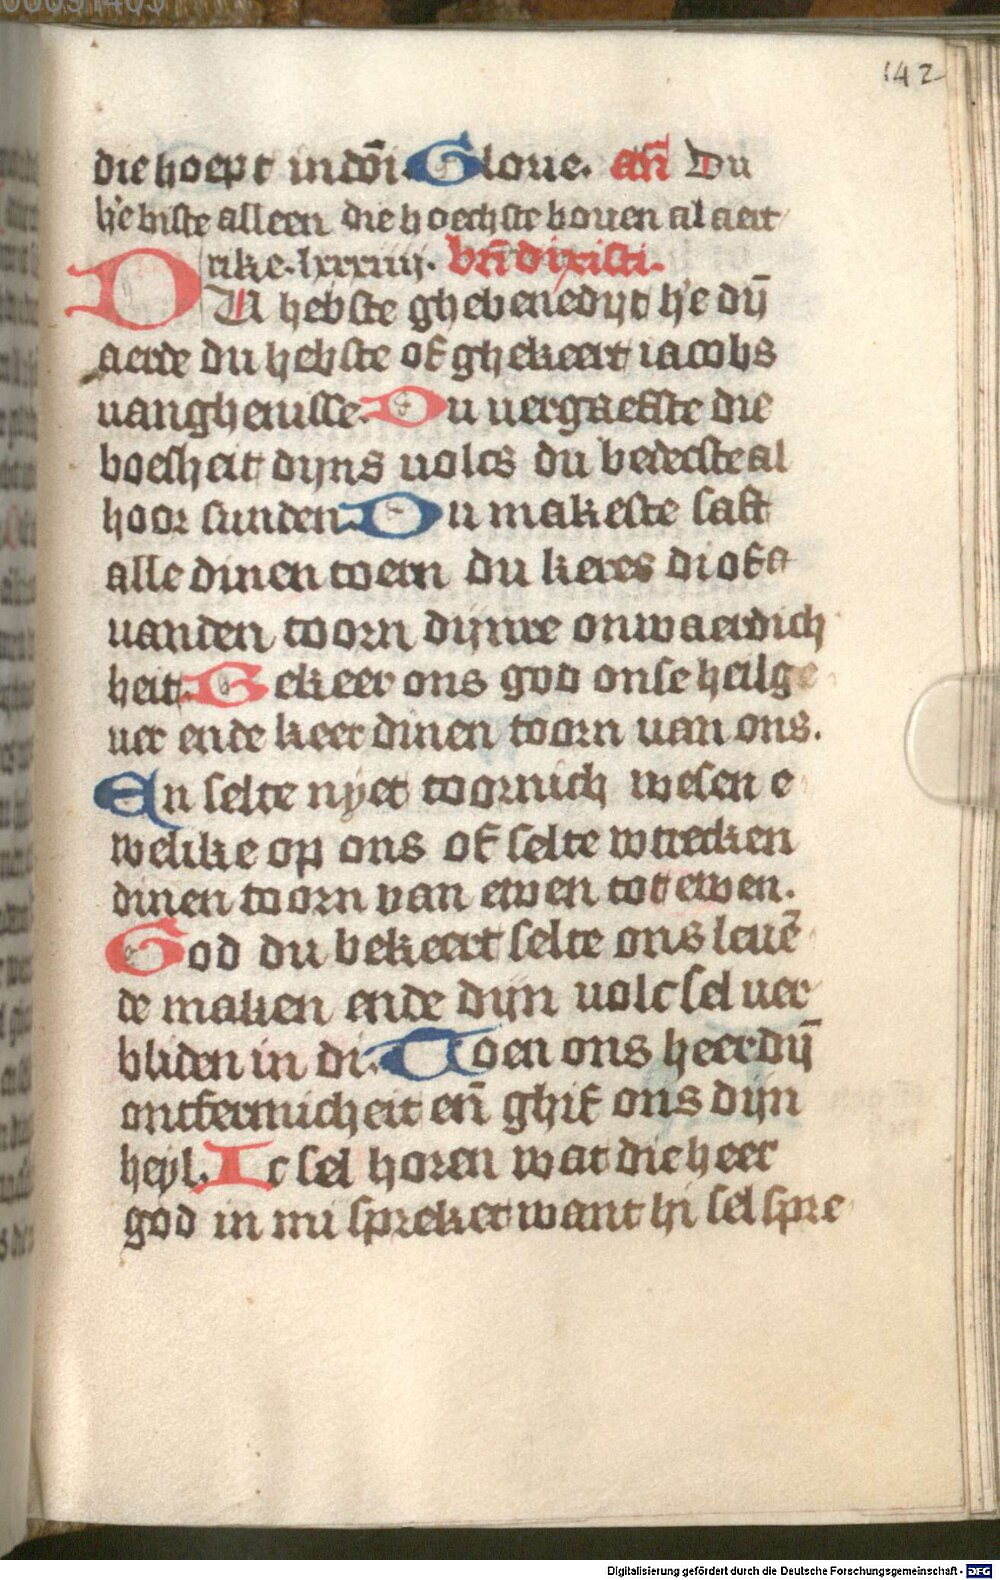 142
die hoept in di. Gloue. an̄ Du
he biste alleen die hoechste bouen al aert
rike. lxxxiiij. bn̄dixisti.
DU hebste ghebenedijt he dij̄
aerde du hebste of ghekeert iacobs
uanghenisse. Du uergaefste die
boesheit dijns uolcs du bedecste al
hoor sunden. Du makeste saft
alle dinen toern du keres di of
uanden toorn dijnre onwaerdich
heit. Bekeer ons god onse heilge
uer ende keer dinen toorn uan ons.
En selte nyet toornich wesen e
welike op ons of selte wtrecken
dinen toorn van ewen tot ewen.
God du bekeert selte ons leuē
de maken ende dijn uolc sel uer
bliden in di. Toen ons heer dij̄
ontfermicheit en̄ ghif ons dijn
heyl. Ic sel horen wat die heer
god in mi spreket want hi sel spre
Digitalisierung gefördert durch die Deutsche Forschungsgemeinschaft - DFG